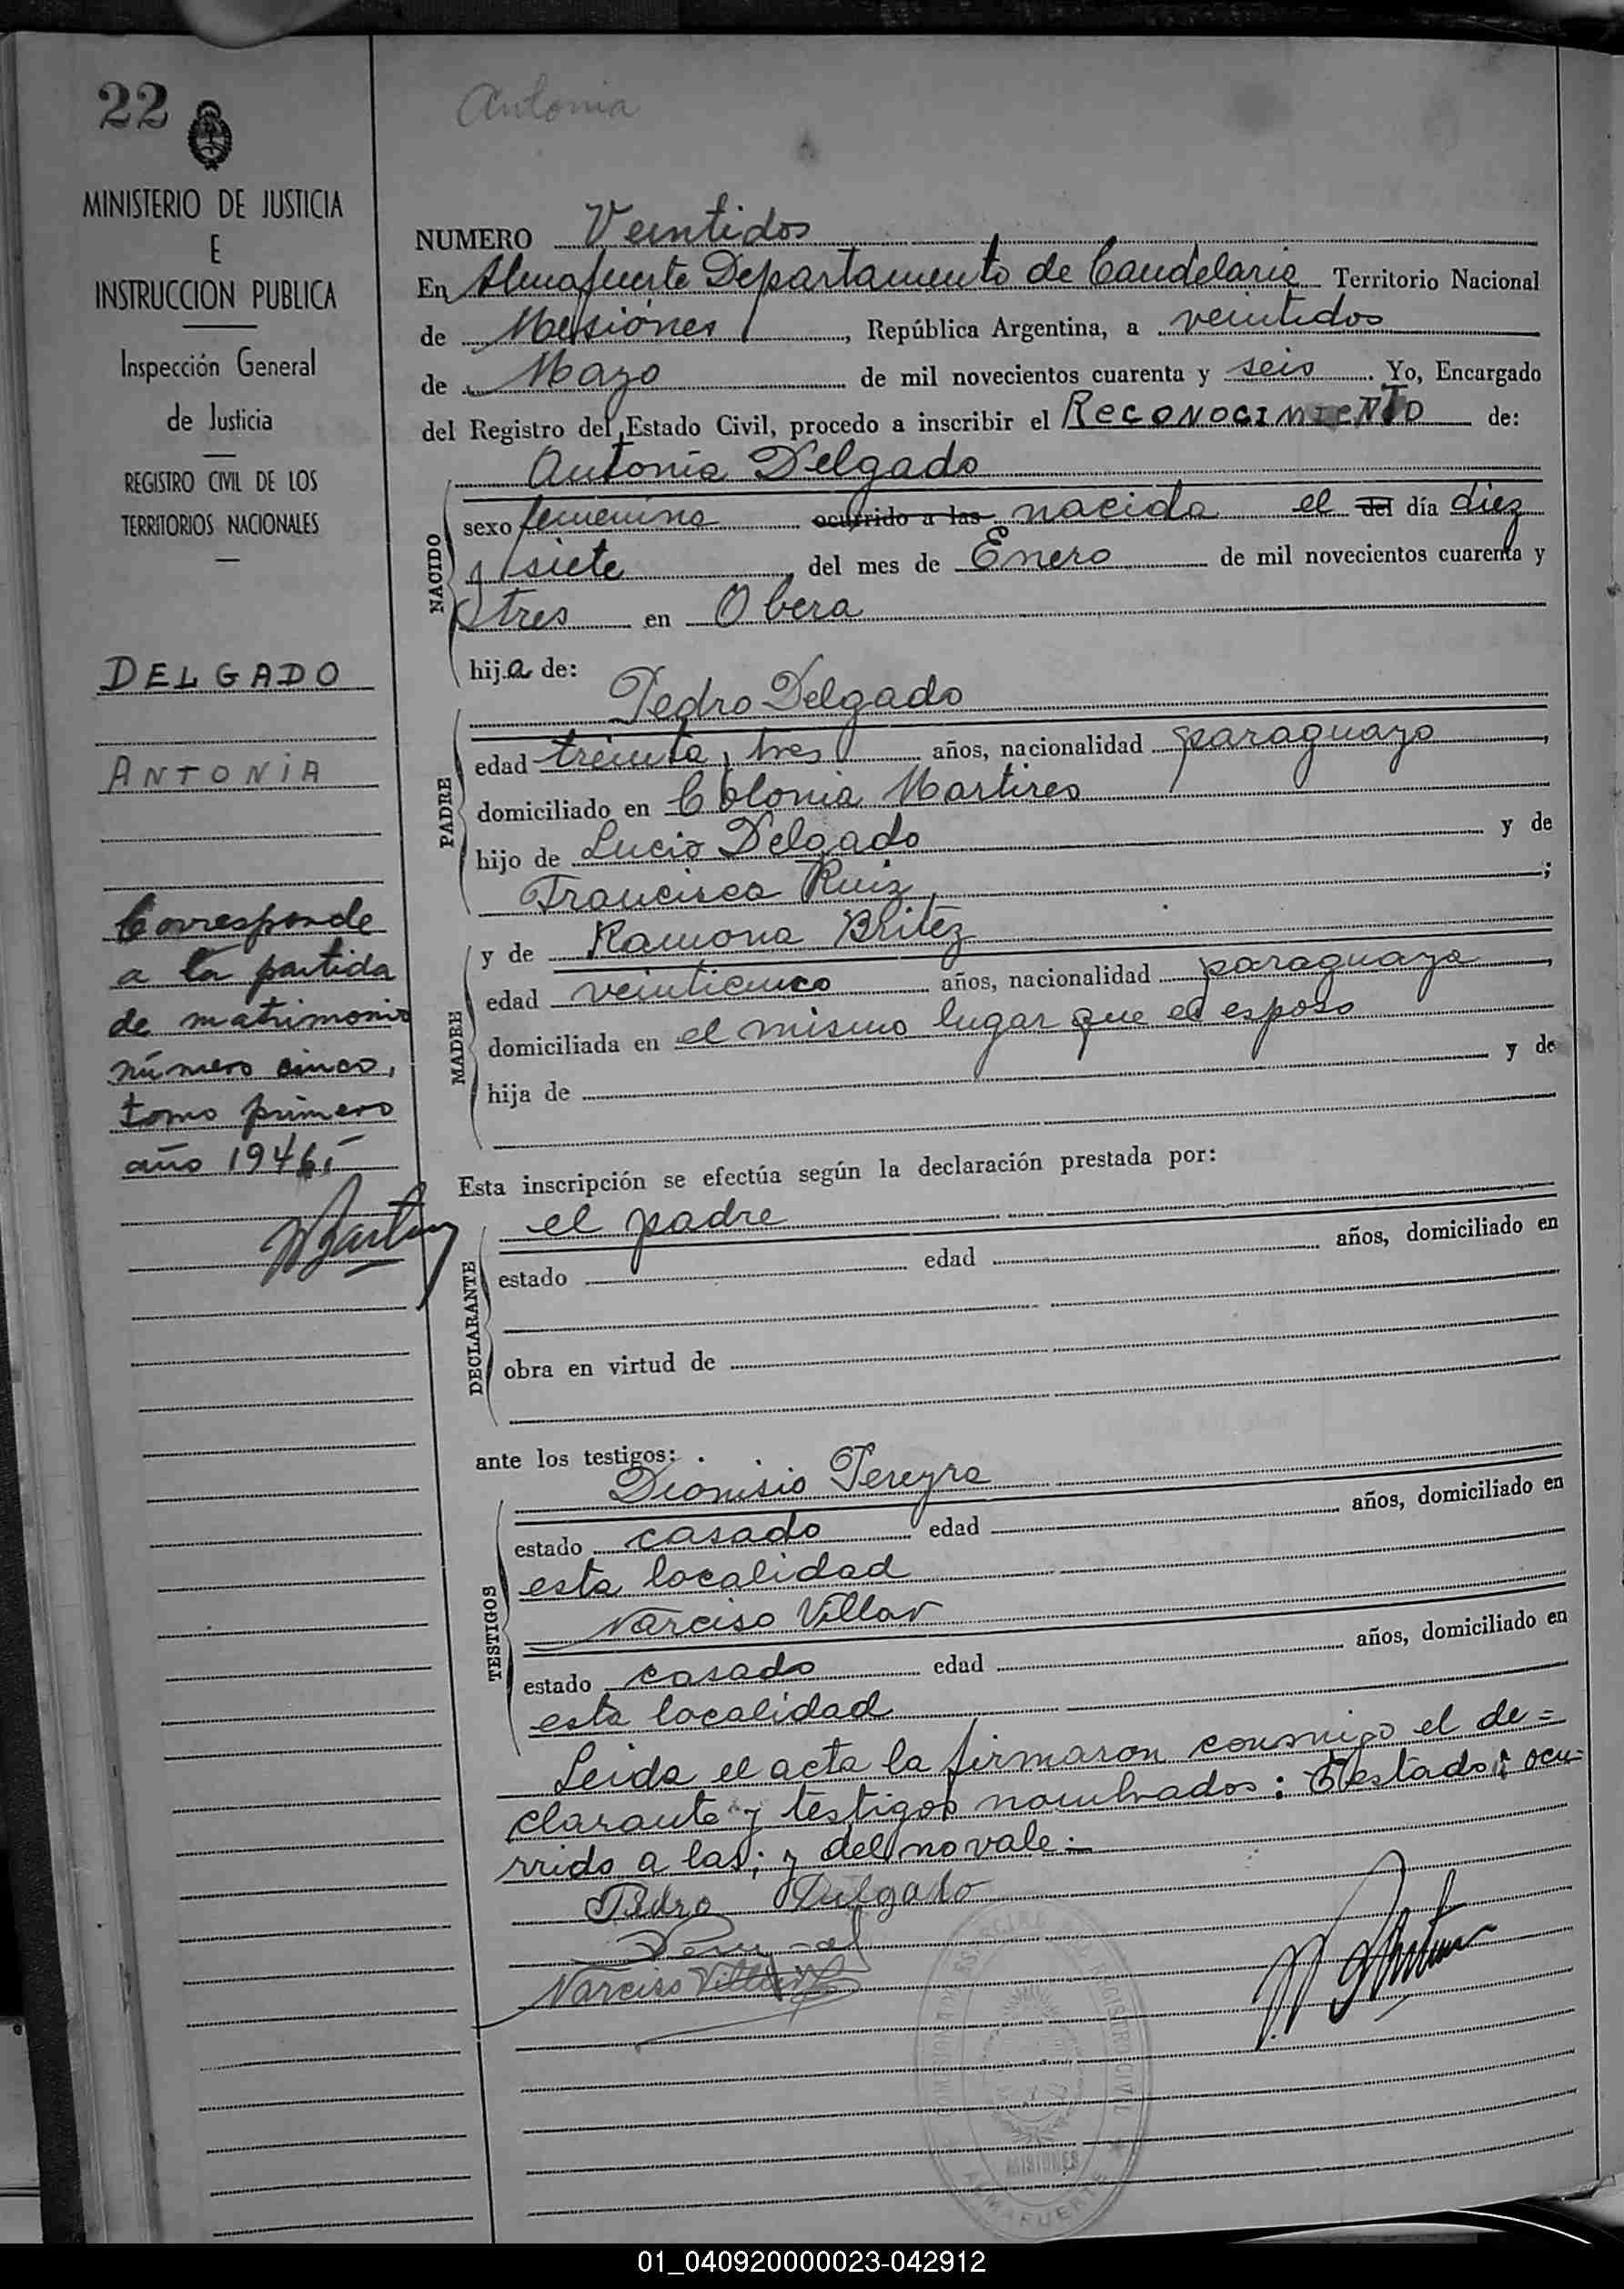 22
Antonia
MINISTERIO DE JUSTICIA
E
INSTRUCCION PUBLICA
Inspección General
de Justicia
REGISTRO CIVIL DE LOS
TERRITORIOS NACIONALES
DELGADO
ANTONIA
Corresponde
a la partida
de matrimonio
número cinco,
tomo primero
año 1946,-
NUMERO Veintidos
En Almafuerte Departamento de Candelaria Territorio Nacional
de Misiones, República Argentina, a veintidos
de Mayo de mil novecientos cuarenta y seis. Yo, Encargado
del Registro del Estado Civil, procedo a inscribir el RECONOCIMIENTO de:
Antonia Delgado
NACIDO
sexo femenino ocurrido a las nacida el del día diez
y siete, del mes de Enero de mil novecientos cuarenta y
tres en Obera
hija de:
Pedro Delgado
PADRE
edad treinta y tres años, nacionalidad paraguayo,
domiciliado en Colonia Martires
hijo de Lucio Delgado y de
Francisca Ruiz;
y de Ramona Britez
MADRE
edad veinticinco años, nacionalidad paraguaya,
domiciliada en el mismo lugar que el esposo
hija de y de
Esta inscripción se efectúa según la declaración prestada por:
el padre
DECLARANTE
estado edad años, domiciliado en
obra en virtud de
ante los testigos:
Dionisio Pereyra
TESTIGOS
estado casado edad años, domiciliado en
esta localidad
Narciso Villar
estado casado edad años, domiciliado en
esta localidad
Leida el acta la firmaron conmigo el de=
clarante y testigos nombrados: Testado: ocu=
rrido a las; y del no vale.-
Pedro Delgado
Narciso Villar
REGISTRO CIVIL
MISIONES
ALMAFUERTE
01_040920000023-042912